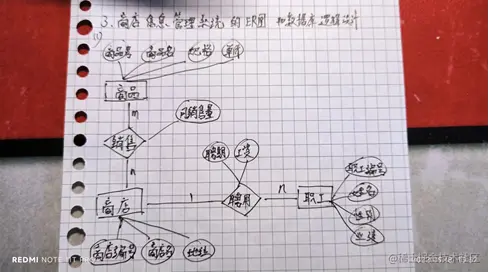 3. 商店信息管理系统的ER图和数据库逻辑设计
(1)
商品号 商品名 规格 单价
商品
m
月销售量
销售
n
聘期 工资
职工编号
商店 1 聘用 n 职工
姓名
性别
商店编号 商店名 地址
REDMI NOTE